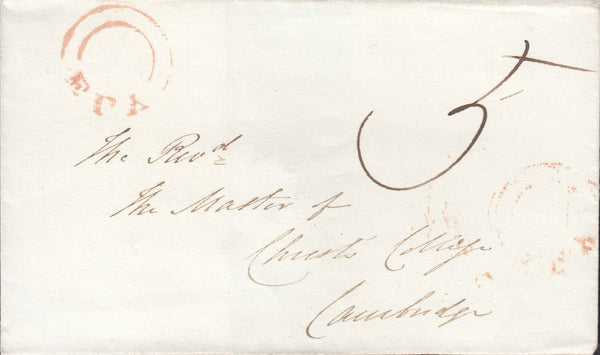 ELY
5
The Revd
The Master of
Christ's College
Cambridge